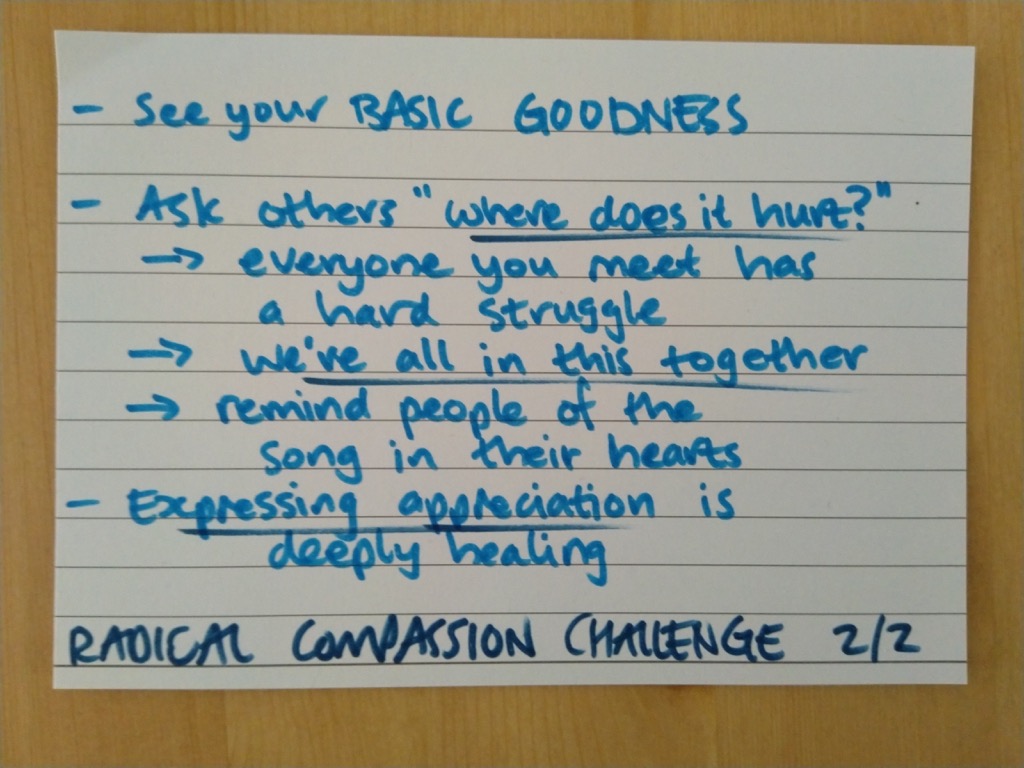 - See your BASIC GOODNESS
- Ask others "where does it hurt?"
→ everyone you meet has
a hard struggle
→ we're all in this together
→ remind people of the
song in their hearts
- Expressing appreciation is
deeply healing
RADICAL COMPASSION CHALLENGE 2/2